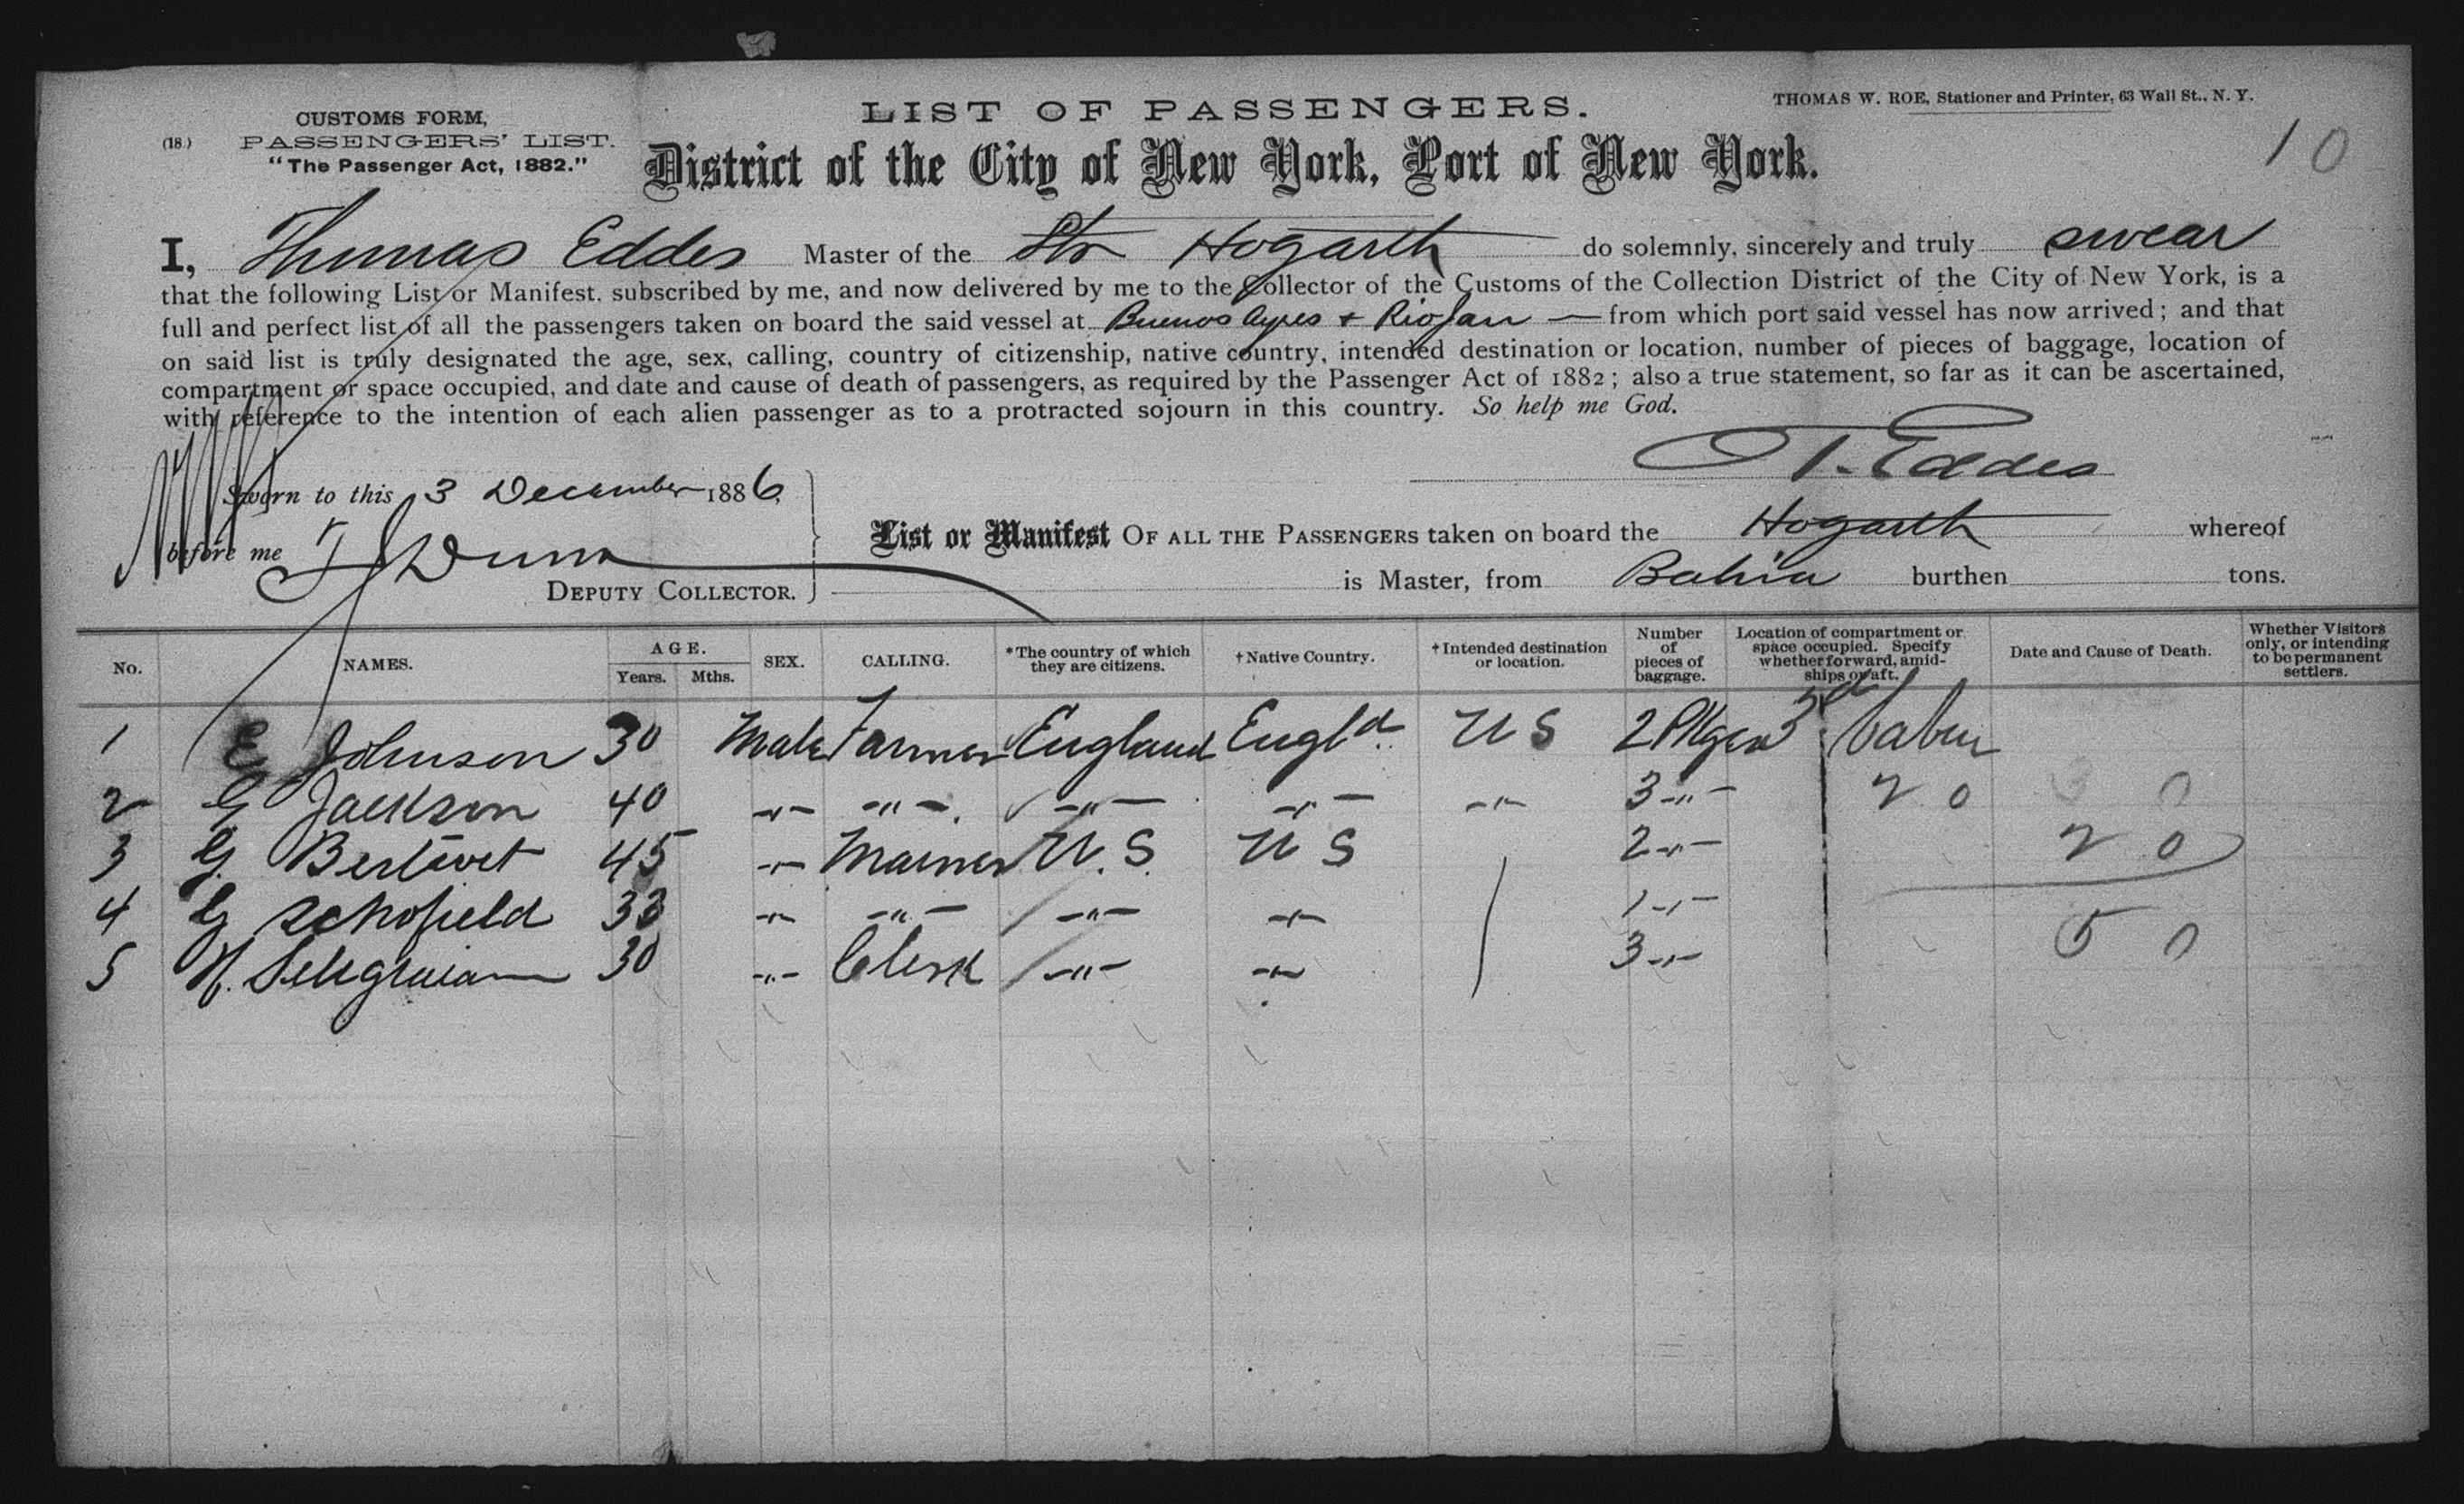 CUSTOMS FORM,
(18.) PASSENGERS' LIST.
"The Passenger Act, 1882."
LIST OF PASSENGERS.
THOMAS W. ROE, Stationer and Printer, 63 Wall St., N. Y.
10
District of the City of New York, Port of New York.
I, Thomas Eddes Master of the Str Hogarth do solemnly, sincerely and truly swear
that the following List or Manifest, subscribed by me, and now delivered by me to the Collector of the Customs of the Collection District of the City of New York, is a
full and perfect list of all the passengers taken on board the said vessel at Buenos Ayres + Rio Jan — from which port said vessel has now arrived; and that
on said list is truly designated the age, sex, calling, country of citizenship, native country, intended destination or location, number of pieces of baggage, location of
compartment or space occupied, and date and cause of death of passengers, as required by the Passenger Act of 1882; also a true statement, so far as it can be ascertained,
with reference to the intention of each alien passenger as to a protracted sojourn in this country. So help me God.
T. Eddes
Sworn to this 3 December 1886,
before me Dunn
DEPUTY COLLECTOR.
List or Manifest OF ALL THE PASSENGERS taken on board the Hogarth whereof
is Master, from Bahia burthen tons.
No. NAMES. AGE. Years. Mths. SEX. CALLING. *The country of which they are citizens. †Native Country. †Intended destination or location. Number of pieces of baggage. Location of compartment or space occupied. Specify whether forward, amidships or aft. Date and Cause of Death. Whether Visitors only, or intending to be permanent settlers.
1 E Johnson 30 Male Farmer England Engld. U S 2 Pkges Cabin
2 G Jackson 40 -"- -"-. -"- -"- -"- 3 -"- 2 0
3 G. 45 -"- U.S. U S 2 -"- 2 0
4 G Schofield 33 -"- -"- -"- -"- 1 -"- 5 0
5 30 -"- Clerk -"- -"- 3 -"-